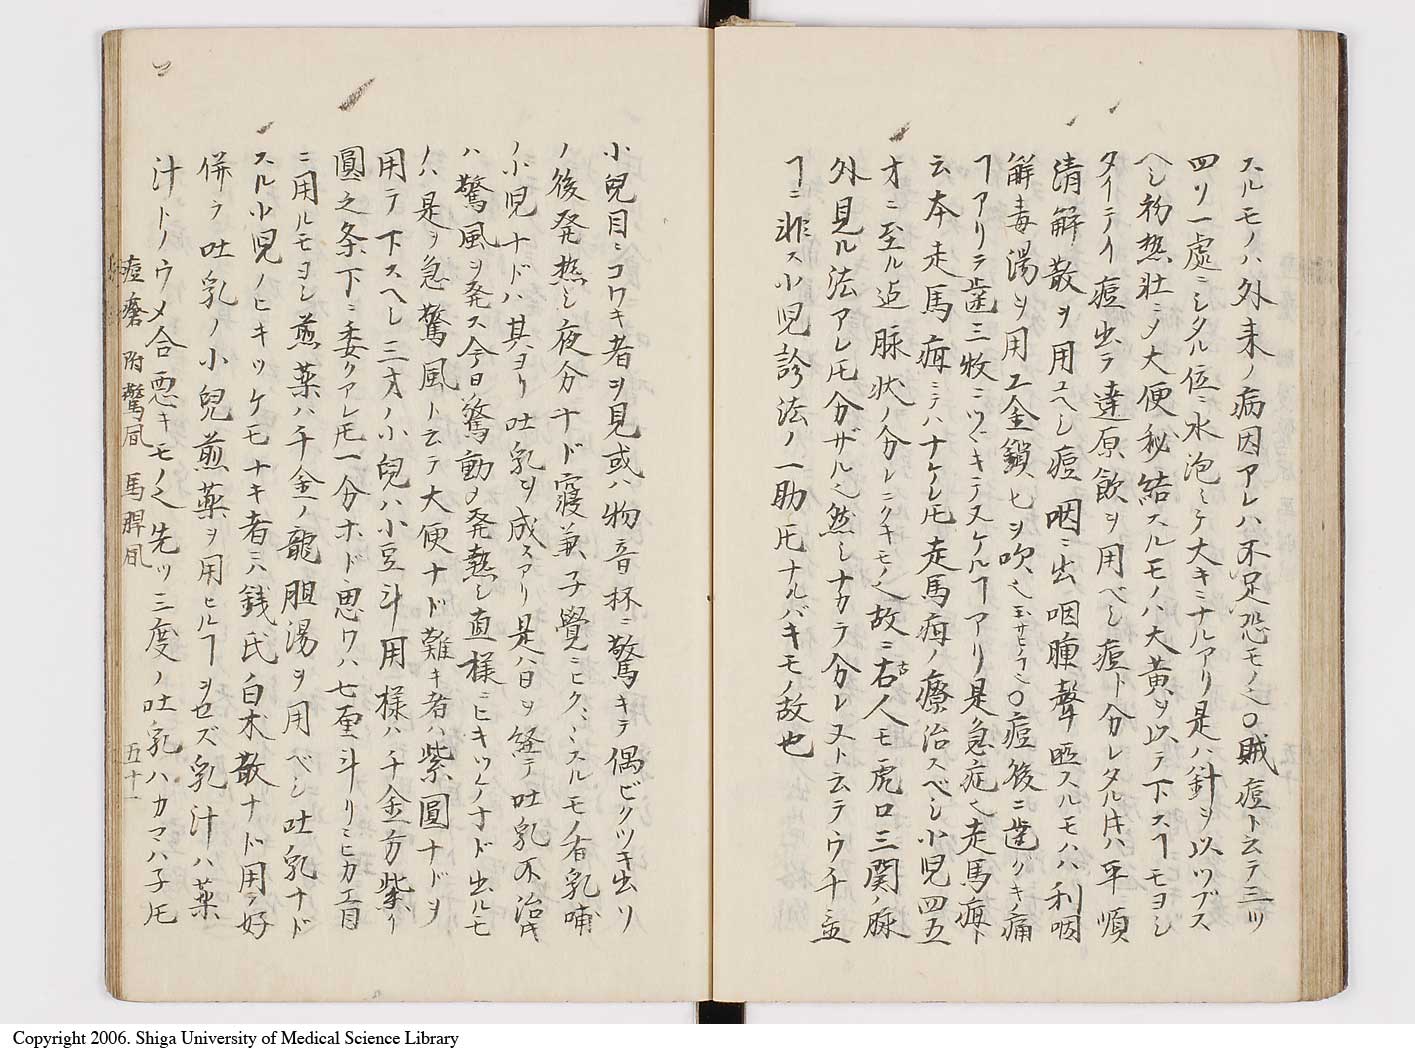 スルモノハ外来ノ病因アレハ不足恐モノ也〇賊痘ト云テ三ツ
四ツ一處ニシタル位ニ水泡ミテ大キニナルアリ是ハ針ヲ以ツブス
ヘシ初熱壮ニメ大便秘結スルモノハ大黄ヲ以テ下スヿモヨシ
タイテイ痘出テ達原飲ヲ用ベシ痘ト分レタル片ハ平順
清解散ヲ用ユヘシ痘咽ニ出咽腫聲唖スルモノハ利咽
解毒湯ヲ用ユ金鎖匕ヲ吹ク也〇痘後ニ齒グキ痛
ヿアリテ齒三牧ニツヾキテヌケルヿアリ是急症也走馬疳ト
云本走馬疳ニテハナケレ𪜈走馬疳ノ療治スベシ小児四五
才ニ至ル迠脉状ノ分レニクキモノ也故ニ古人モ虎口三関ノ脉
外見ル法アレ𪜈分ザル也然シナカラ分レヌト云テウチ立
ヿニ非ス小児診法ノ一助𪜈ナルバキモノ故也
小兒目ニコワキ者ヲ見或ハ物音抔ニ驚キテ偶ビクツキ出リ
ノ後発熱シ夜分ナド寢兼子覺ニヒクミミスルモノ有乳哺
ノ小児ナドハ其ヨリ吐乳ヲ成スアリ是ハ日ヲ経テ吐乳不治片
ハ驚風ヲ発ス今日驚動メ発熱シ直様ニヒキツケナド出ルモ
ノハ是ヲ急驚風ト云テ大便ナド難キ者ハ紫圓ナドヲ
用テ下スヘシ三才ノ小兒ハ小豆斗用様ハ千金方紫ノ
圓之条下ニ委クアレ𪜈一分ホド思ワハ七厘斗リニヒカエ目
ニ用ルモヨシ煎薬ハ千金ノ龍胆湯ヲ用ベシ吐乳ナド
スル小児ノヒキツケモナキ者ニハ銭氏白朮散ナド用テ好
併テ吐乳ノ小兒煎薬ヲ用ヒルヿヲセズ乳汁ハ薬
汁トノウメ合悪キモノ也先ツ三度ノ吐乳ハカマハ子𪜈
痘瘡 附驚風 馬脾風 五十一
Copyright 2006. Shiga University of Medical Science Library